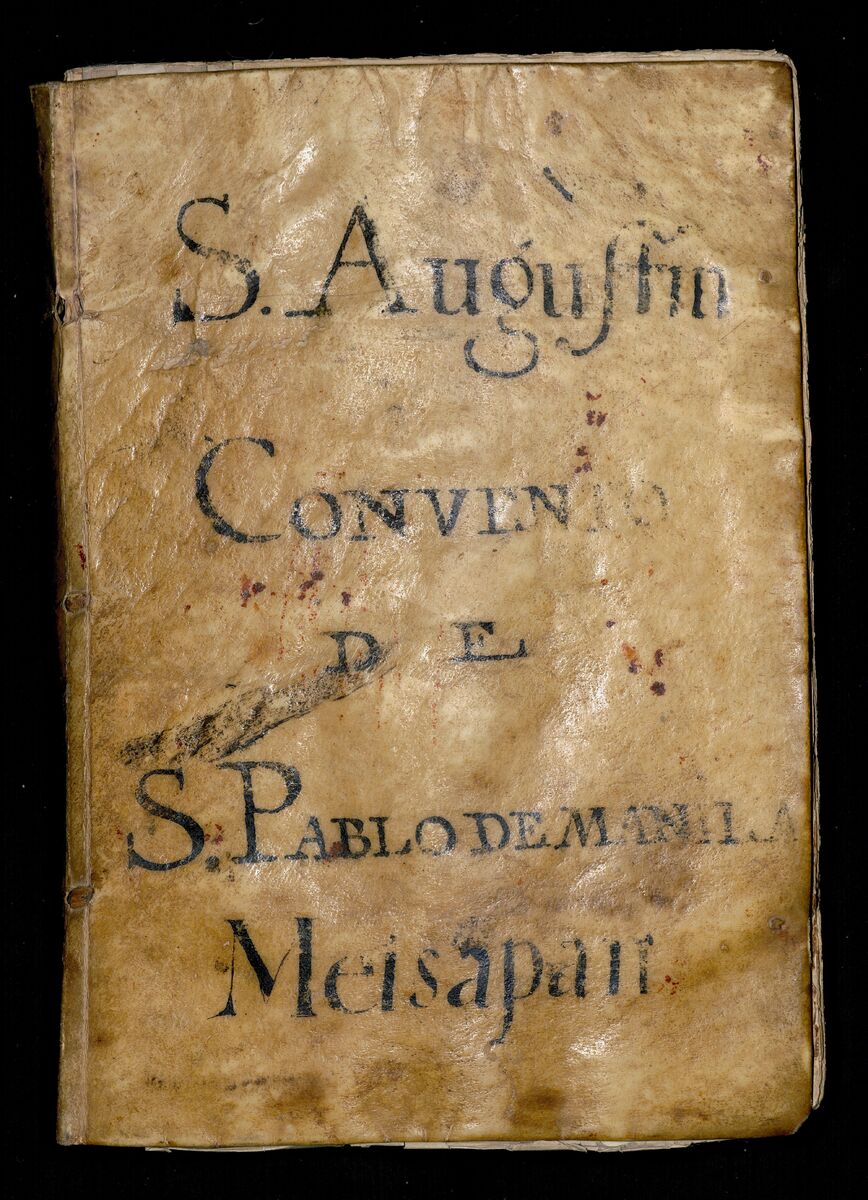 S. Auguſtin
CONVENTO
DE
S. PABLO DE MANILA
Meisapan